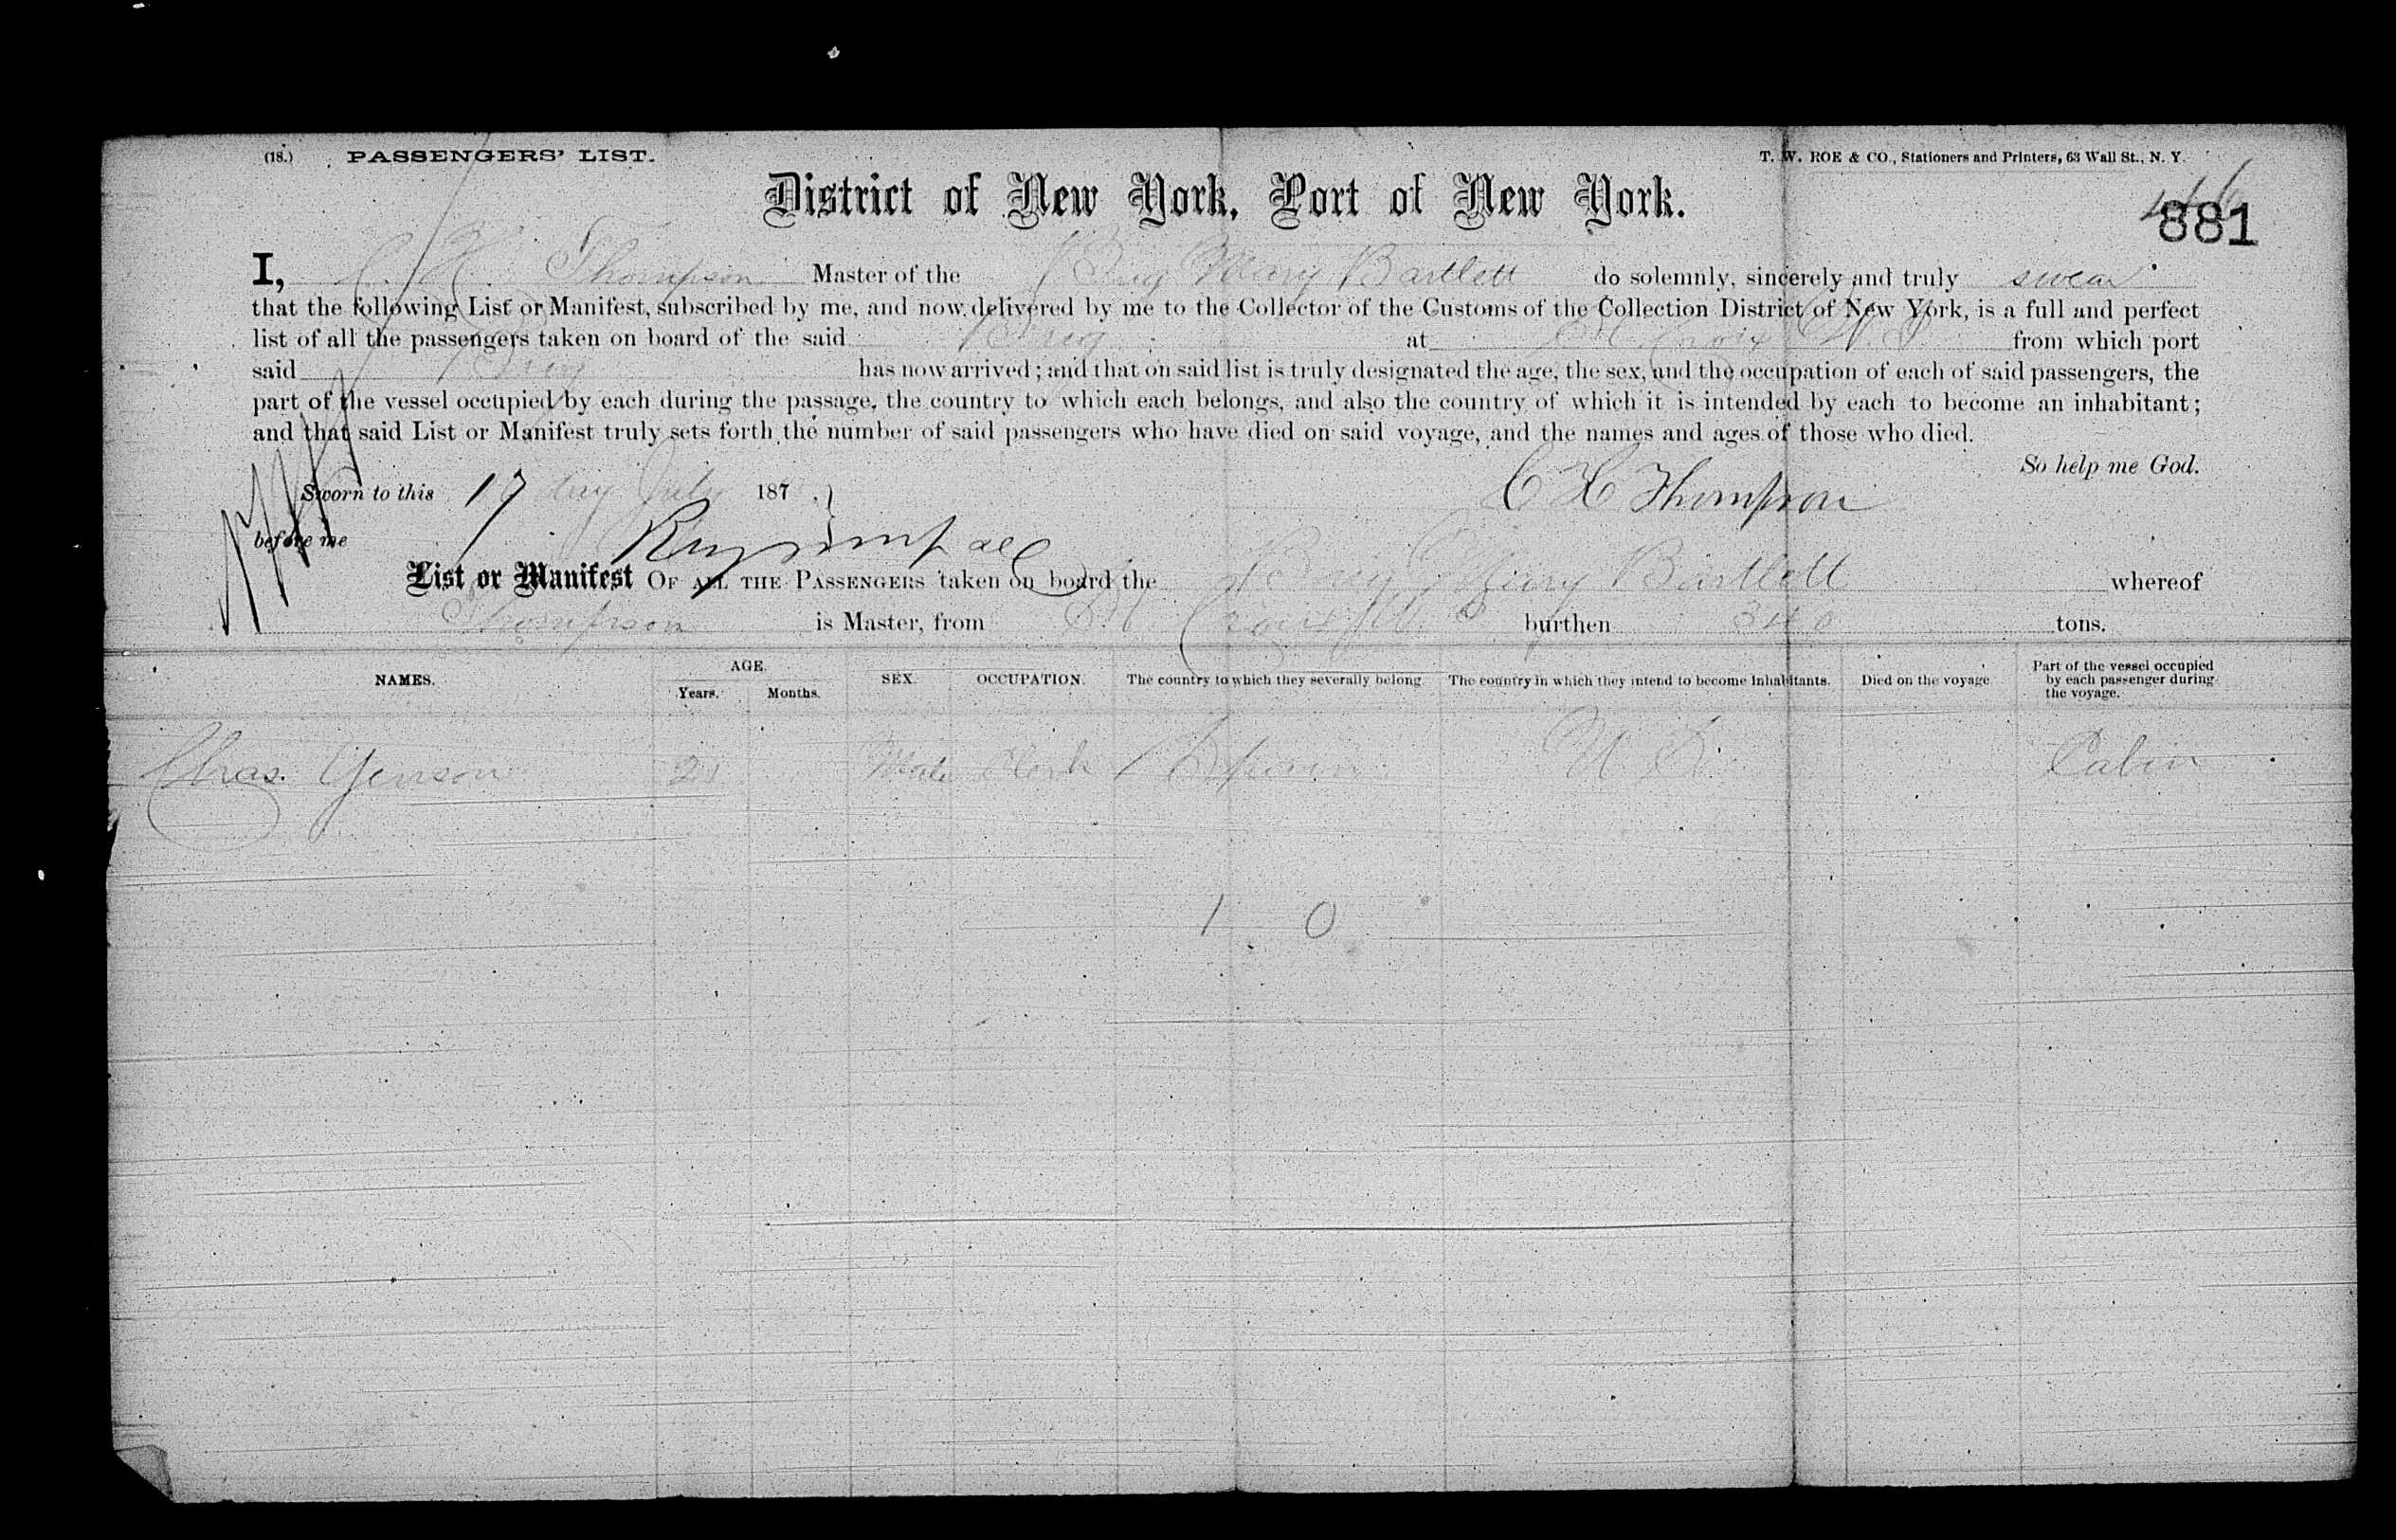 (18.) PASSENGERS' LIST.
T. W. ROE & CO., Stationers and Printers, 63 Wall St., N. Y.
District of New York, Port of New York.
881
I, C. H. Thompson Master of the Brig Mary Bartlett do solemnly, sincerely and truly swear
that the following List or Manifest, subscribed by me, and now delivered by me to the Collector of the Customs of the Collection District of New York, is a full and perfect
list of all the passengers taken on board of the said Brig at St Croix W. I. from which port
said Brig has now arrived; and that on said list is truly designated the age, the sex, and the occupation of each of said passengers, the
part of the vessel occupied by each during the passage, the country to which each belongs, and also the country of which it is intended by each to become an inhabitant;
and that said List or Manifest truly sets forth the number of said passengers who have died on said voyage, and the names and ages of those who died.
So help me God.
Sworn to this 17 day July 187 .
C H Thompson
before me
List or Manifest OF ALL THE PASSENGERS taken on board the Brig Mary Bartlett whereof
Thompson is Master, from St Croix W. I. burthen 340 tons.
NAMES. AGE. Years. Months. SEX. OCCUPATION. The country to which they severally belong. The country in which they intend to become Inhabitants. Died on the voyage Part of the vessel occupied by each passenger during the voyage.
Chas. Yenson 21 Male Clerk U. S. Cabin
1 0